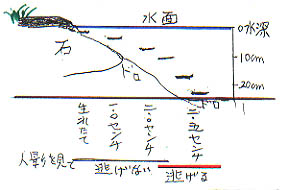 水面
0水深
石
ドロ
10cm
20cm
ドロ
生れたて
二・〇センチ
二・五センチ
人影を見て
逃げない
逃げる